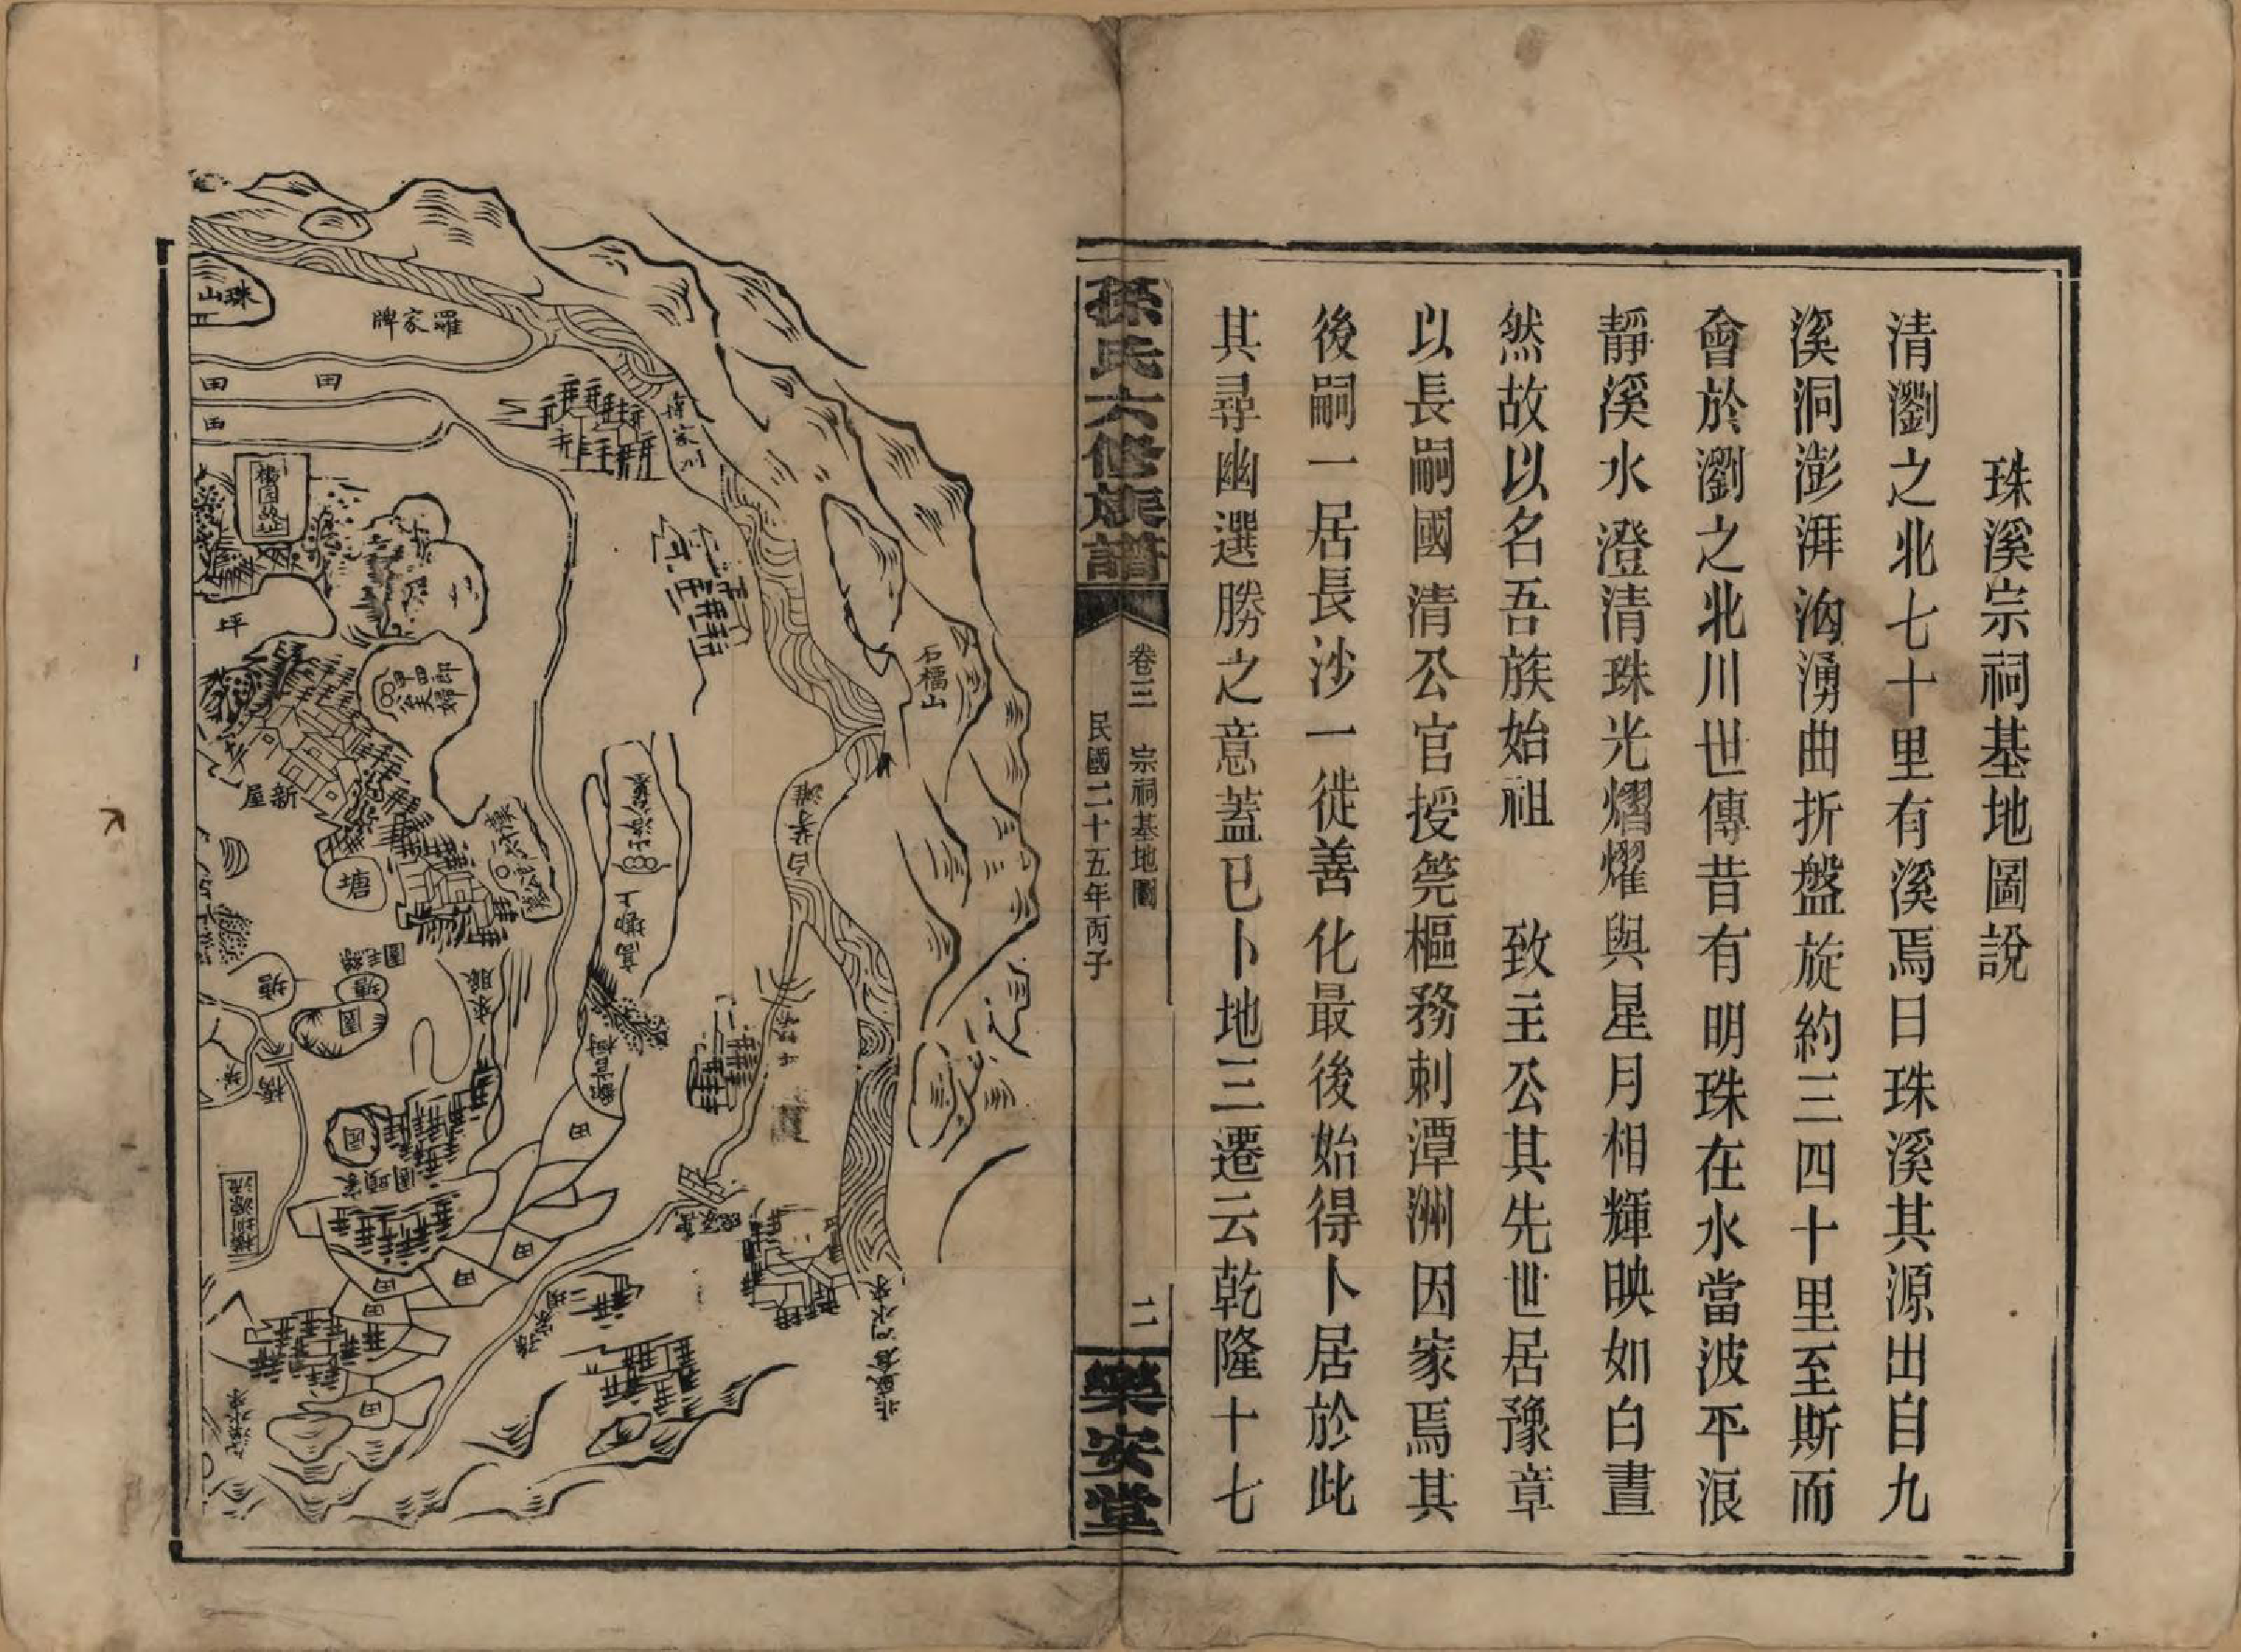 珠溪宗祠基地圖說
清瀏之北七十里有溪焉曰珠溪其源出自九
溪洞澎湃洶湧曲折盤旋約三四十里至斯而
會於瀏之北川世傳昔有明珠在水當波平浪
靜溪水澄清珠光熠燿與星月相輝映如白晝
然故以名吾族始祖 致主公其先世居豫章
以長嗣國清公官授筦樞務刺潭洲因家焉其
後嗣一居長沙一徙善化最後始得卜居於此
其尋幽選勝之意蓋已卜地三遷云乾隆十七
孫氏六修族譜
卷三 宗祠基地圖
民國二十五年丙子
二
樂安堂
石福山
南家川
羅家牌
珠山
田
田
田
坪
新屋
塘
白茅灘
高塅上
塘
塘
園
橋
園
園頭家
田
田
田
田
田
田